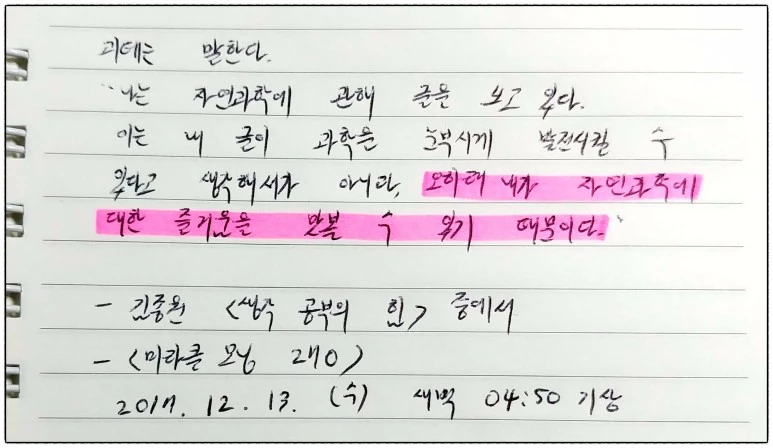 괴테는 말한다.
"나는 자연과학에 관해 글을 보고 있다.
이는 내 글이 과학을 눈부시게 발전시킬 수
있다고 생각해서가 아니다, 오히려 내가 자연과학에
대한 즐거운을 맛볼 수 있기 때문이다."
- 김종원 <생각 공부의 힘> 중에서
- <미라클 모닝 270>
2017. 12. 13. (수) 새벽 04:50 기상